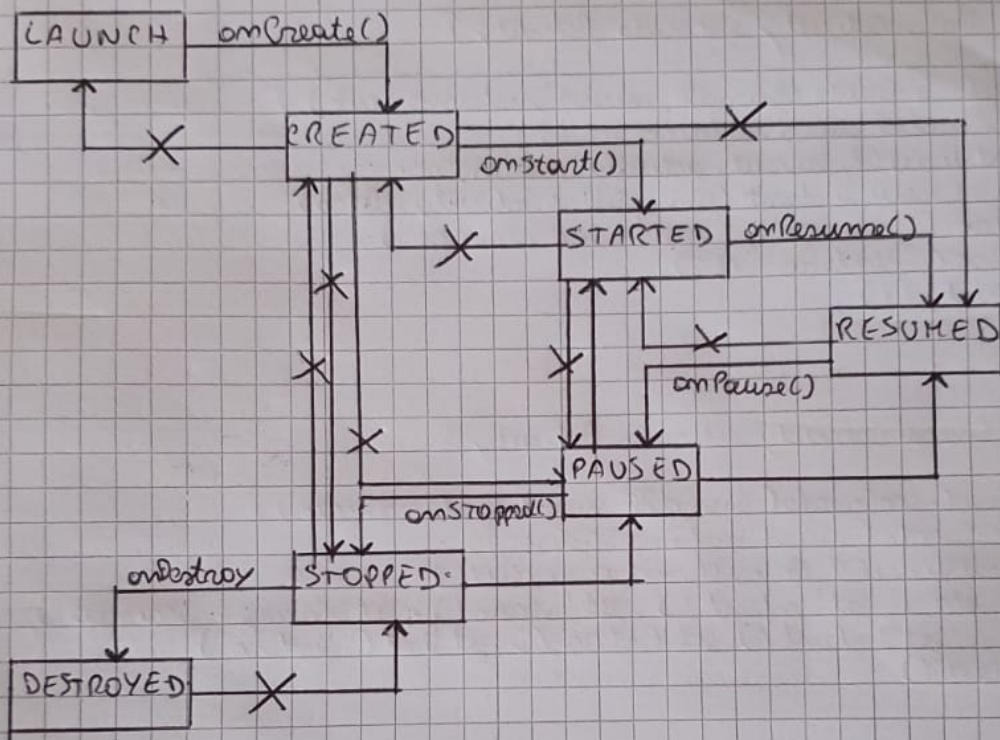 LAUNCH
onCreate()
CREATED
onStart()
STARTED
onResume()
RESUMED
onPause()
PAUSED
onStopped()
onDestroy
STOPPED
DESTROYED